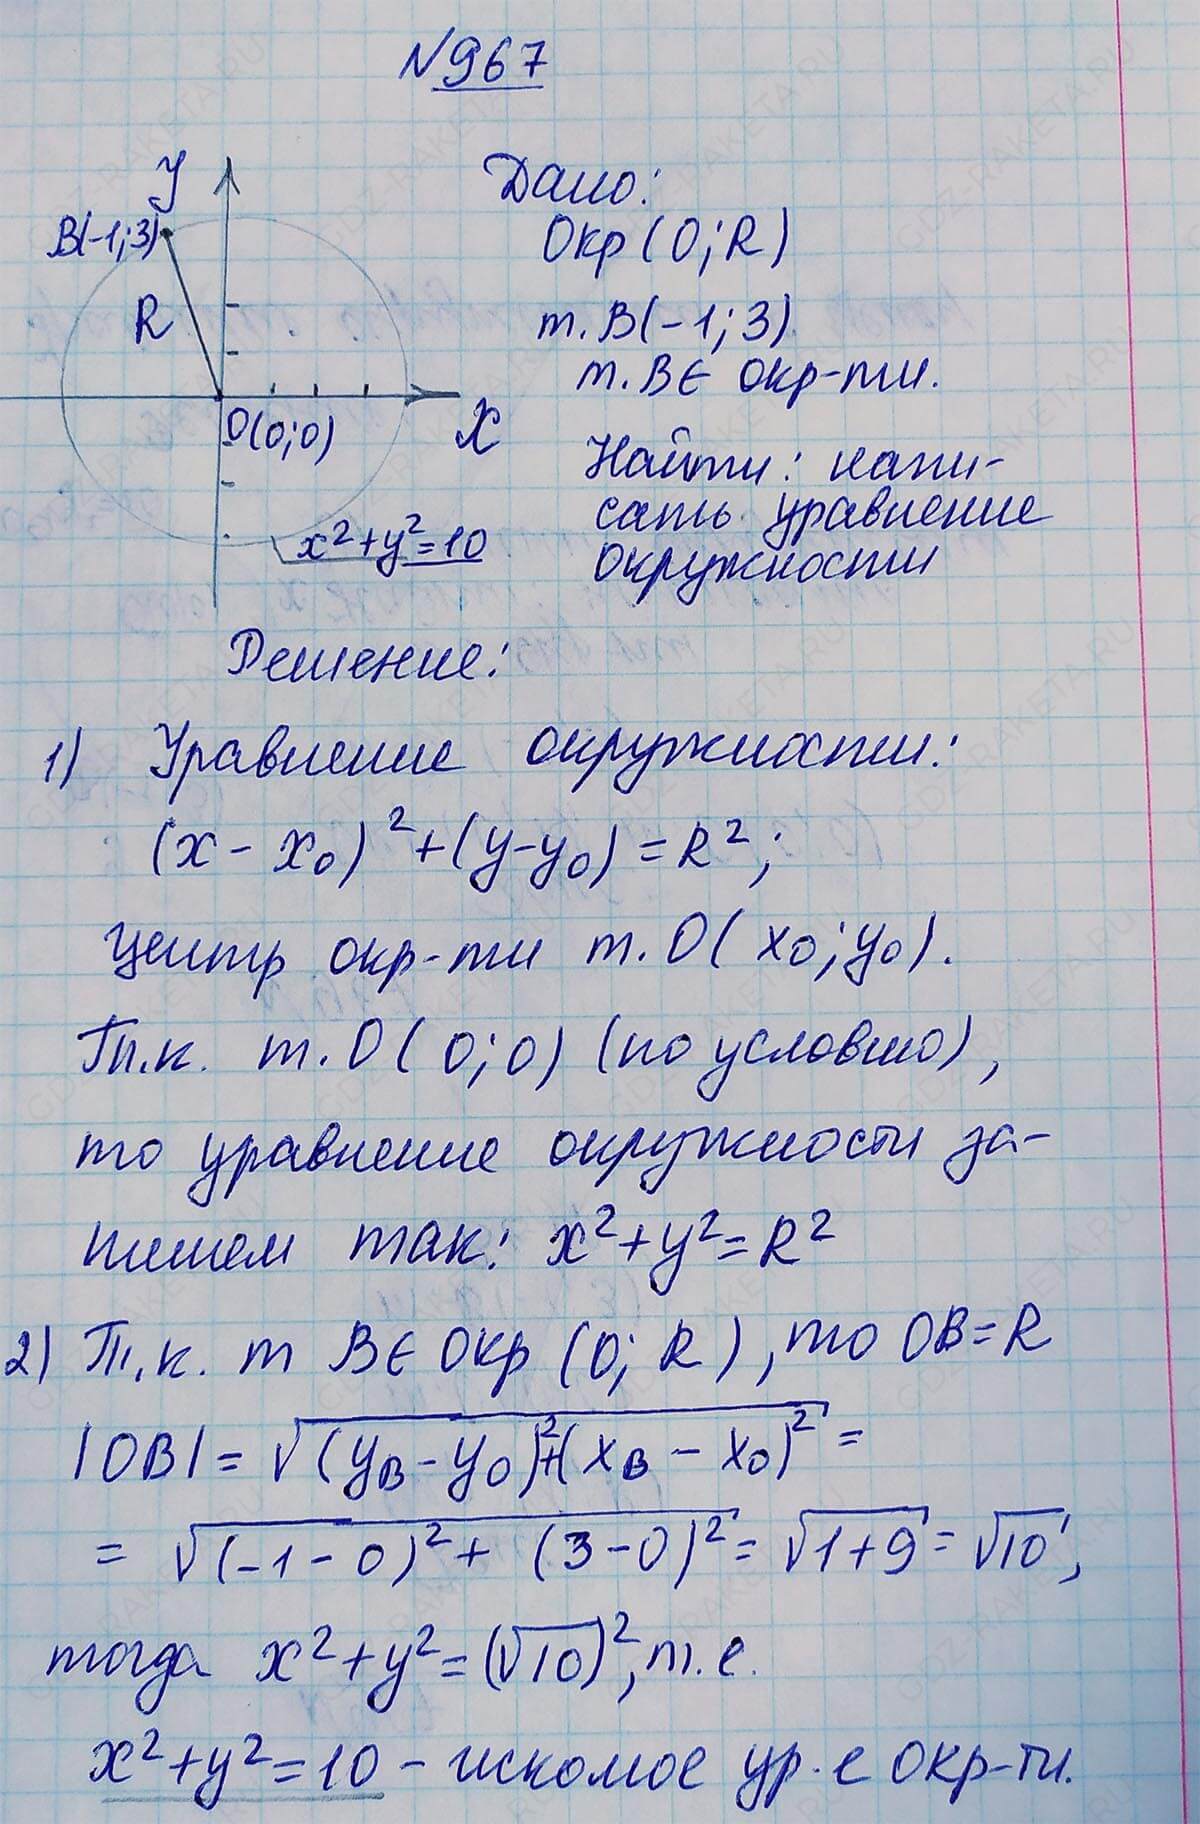 №967
y
B(-1;3)
R
O(0;0)
X
x²+y²=10
Дано:
Окр(О;R)
т. B(-1;3)
т. B∈ окр-ти.
Найти: напи-
сать уравнение
окружности
Решение:
1) Уравнение окружности:
(x - x₀)²+(y-y₀)=R²;
центр окр-ти т. О(x₀;y₀).
Т.к. т. О(0;0) (по условию),
то уравнение окружности за-
пишем так: x²+y²=R²
2) Т.к. т B∈ Окр (О; R), то OB=R
|OB|= √(y_B - y_O)²+(x_B - x_O)² =
= √(-1-0)² + (3-0)² = √1+9 = √10,
тогда x²+y²=(√10)², т.е.
x²+y²=10 - искомое ур-е окр-ти.
GDZ-RAKETA.RU